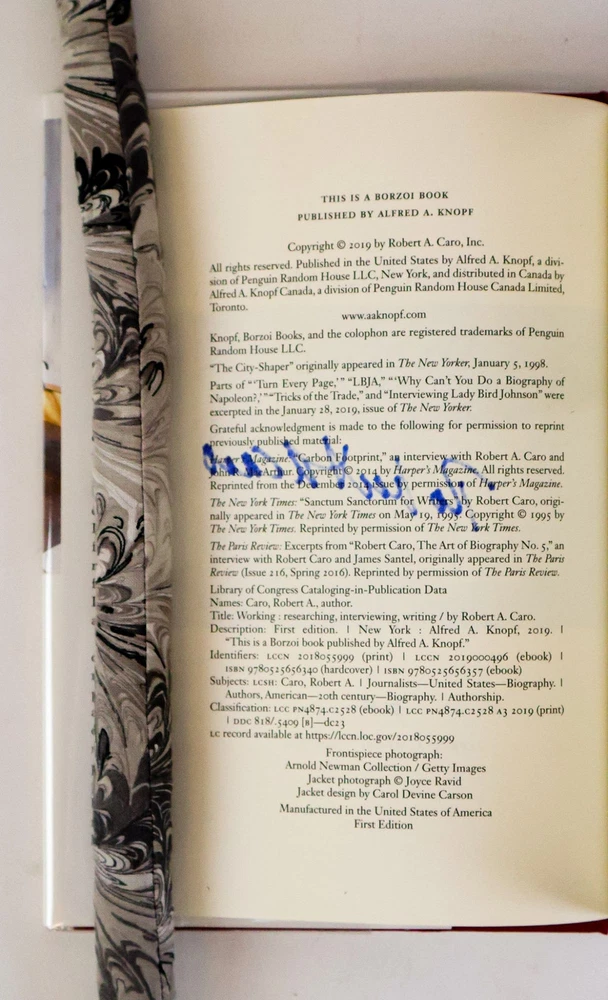 THIS IS A BORZOI BOOK
PUBLISHED BY ALFRED A. KNOPF
Copyright © 2019 by Robert A. Caro, Inc.
All rights reserved. Published in the United States by Alfred A. Knopf, a divi-
sion of Penguin Random House LLC, New York, and distributed in Canada by
Alfred A. Knopf Canada, a division of Penguin Random House Canada Limited,
Toronto.
www.aaknopf.com
Knopf, Borzoi Books, and the colophon are registered trademarks of Penguin
Random House LLC.
“The City-Shaper” originally appeared in The New Yorker, January 5, 1998.
Parts of “‘Turn Every Page,’” “LBJA,” “‘Why Can’t You Do a Biography of
Napoleon?,’” “Tricks of the Trade,” and “Interviewing Lady Bird Johnson” were
excerpted in the January 28, 2019, issue of The New Yorker.
Grateful acknowledgment is made to the following for permission to reprint
previously published material:
Harper’s Magazine: “Carbon Footprint,” an interview with Robert A. Caro and
Arthur. Copyright © 2014 by Harper’s Magazine. All rights reserved.
Reprinted from the December 2014 issue by permission of Harper’s Magazine.
The New York Times: “Sanctum Sanctorum for Writers” by Robert Caro, origi-
nally appeared in The New York Times on May 19, 1995. Copyright © 1995 by
The New York Times. Reprinted by permission of The New York Times.
The Paris Review: Excerpts from “Robert Caro, The Art of Biography No. 5,” an
interview with Robert Caro and James Santel, originally appeared in The Paris
Review (Issue 216, Spring 2016). Reprinted by permission of The Paris Review.
Library of Congress Cataloging-in-Publication Data
Names: Caro, Robert A., author.
Title: Working : researching, interviewing, writing / by Robert A. Caro.
Description: First edition. | New York : Alfred A. Knopf, 2019. |
“This is a Borzoi book published by Alfred A. Knopf.”
Identifiers: LCCN 2018055999 (print) | LCCN 2019000496 (ebook) |
ISBN 9780525656340 (hardcover) | ISBN 9780525656357 (ebook)
Subjects: LCSH: Caro, Robert A. | Journalists—United States—Biography. |
Authors, American—20th century—Biography. | Authorship.
Classification: LCC PN4874.C2528 (ebook) | LCC PN4874.C2528 A3 2019 (print)
| DDC 818/.5409 [B]—dc23
LC record available at https://lccn.loc.gov/2018055999
Frontispiece photograph:
Arnold Newman Collection / Getty Images
Jacket photograph © Joyce Ravid
Jacket design by Carol Devine Carson
Manufactured in the United States of America
First Edition